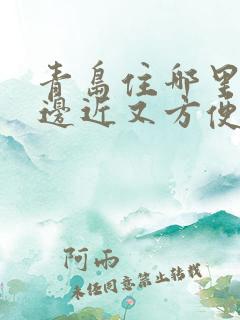 青島住哪里
邊近又方便
阿雨
未经同意禁止转载